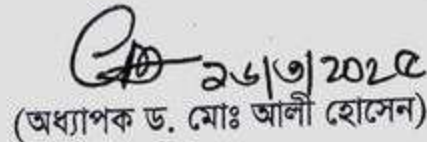 ২৬|৩|202৫
(অধ্যাপক ড. মোঃ আলী হোসেন)